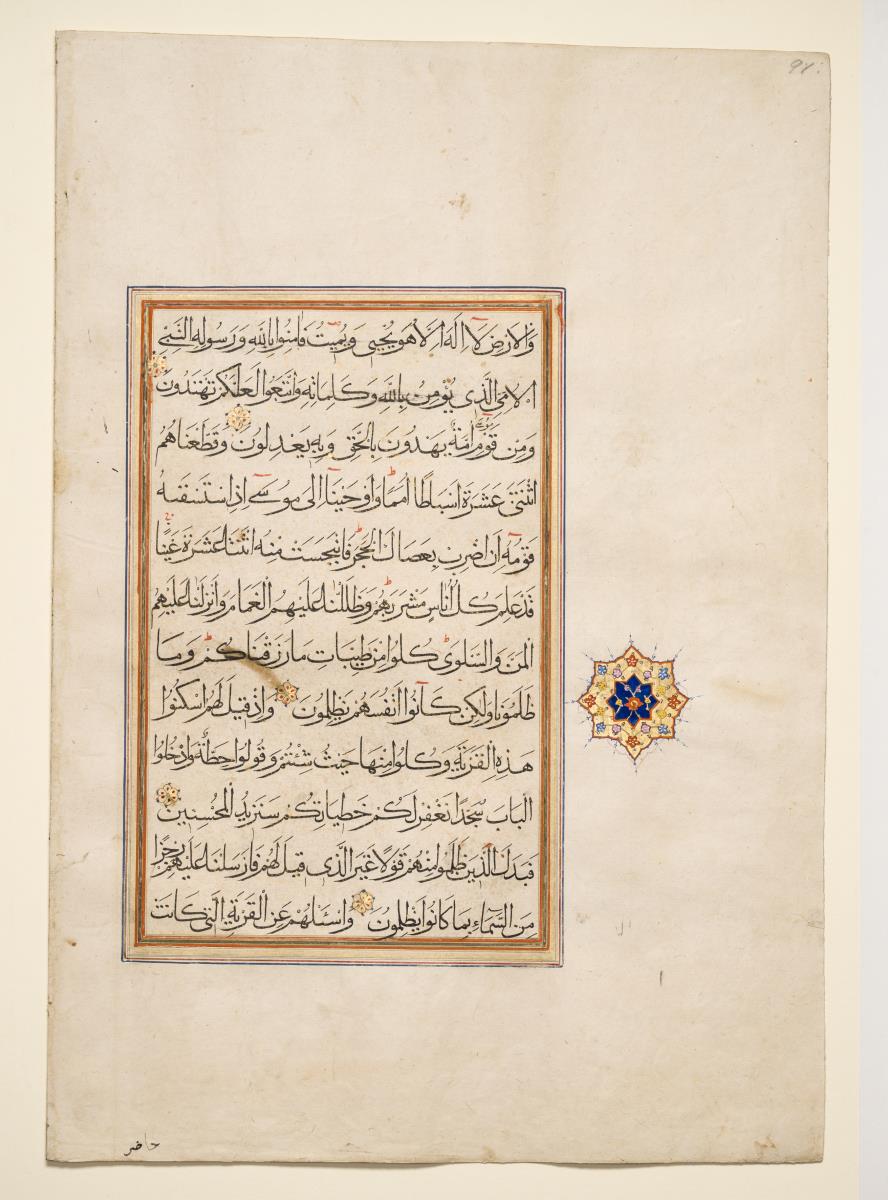 وَالْاَرْضِ لَآ اِلٰهَ اِلَّا هُوَ يُحْيِي وَيُمِيتُ فَاٰمِنُوا بِاللّٰهِ وَرَسُولِهِ النَّبِيِّ
الْاُمِّيِّ الَّذِي يُؤْمِنُ بِاللّٰهِ وَكَلِمَاتِهِ وَاتَّبِعُوا لَعَلَّكُمْ تَهْتَدُونَ
وَمِنْ قَوْمِ مُوسٰى اُمَّةٌ يَهْدُونَ بِالْحَقِّ وَبِهِ يَعْدِلُونَ وَقَطَّعْنَاهُمُ
اثْنَتَيْ عَشْرَةَ اَسْبَاطًا اُمَمًا وَاَوْحَيْنَآ اِلٰى مُوسٰٓى اِذِ اسْتَسْقٰىهُ
قَوْمُهُٓ اَنِ اضْرِبْ بِعَصَاكَ الْحَجَرَ فَانْبَجَسَتْ مِنْهُ اثْنَتَا عَشْرَةَ عَيْنًا
قَدْ عَلِمَ كُلُّ اُنَاسٍ مَشْرَبَهُمْ وَظَلَّلْنَا عَلَيْهِمُ الْغَمَامَ وَاَنْزَلْنَا عَلَيْهِمُ
الْمَنَّ وَالسَّلْوٰى كُلُوا مِنْ طَيِّبَاتِ مَا رَزَقْنَاكُمْ وَمَا
ظَلَمُونَا وَلٰكِنْ كَانُٓوا اَنْفُسَهُمْ يَظْلِمُونَ وَاِذْ قِيلَ لَهُمُ اسْكُنُوا
هٰذِهِ الْقَرْيَةَ وَكُلُوا مِنْهَا حَيْثُ شِئْتُمْ وَقُولُوا حِطَّةٌ وَادْخُلُوا
الْبَابَ سُجَّدًا نَغْفِرْ لَكُمْ خَطِيٓـَٔاتِكُمْ سَنَزِيدُ الْمُحْسِنِينَ
فَبَدَّلَ الَّذِينَ ظَلَمُوا مِنْهُمْ قَوْلًا غَيْرَ الَّذِي قِيلَ لَهُمْ فَاَرْسَلْنَا عَلَيْهِمْ رِجْزًا
مِنَ السَّمَآءِ بِمَا كَانُوا يَظْلِمُونَ وَاسْئَلْهُمْ عَنِ الْقَرْيَةِ الَّتِي كَانَتْ
حاضر